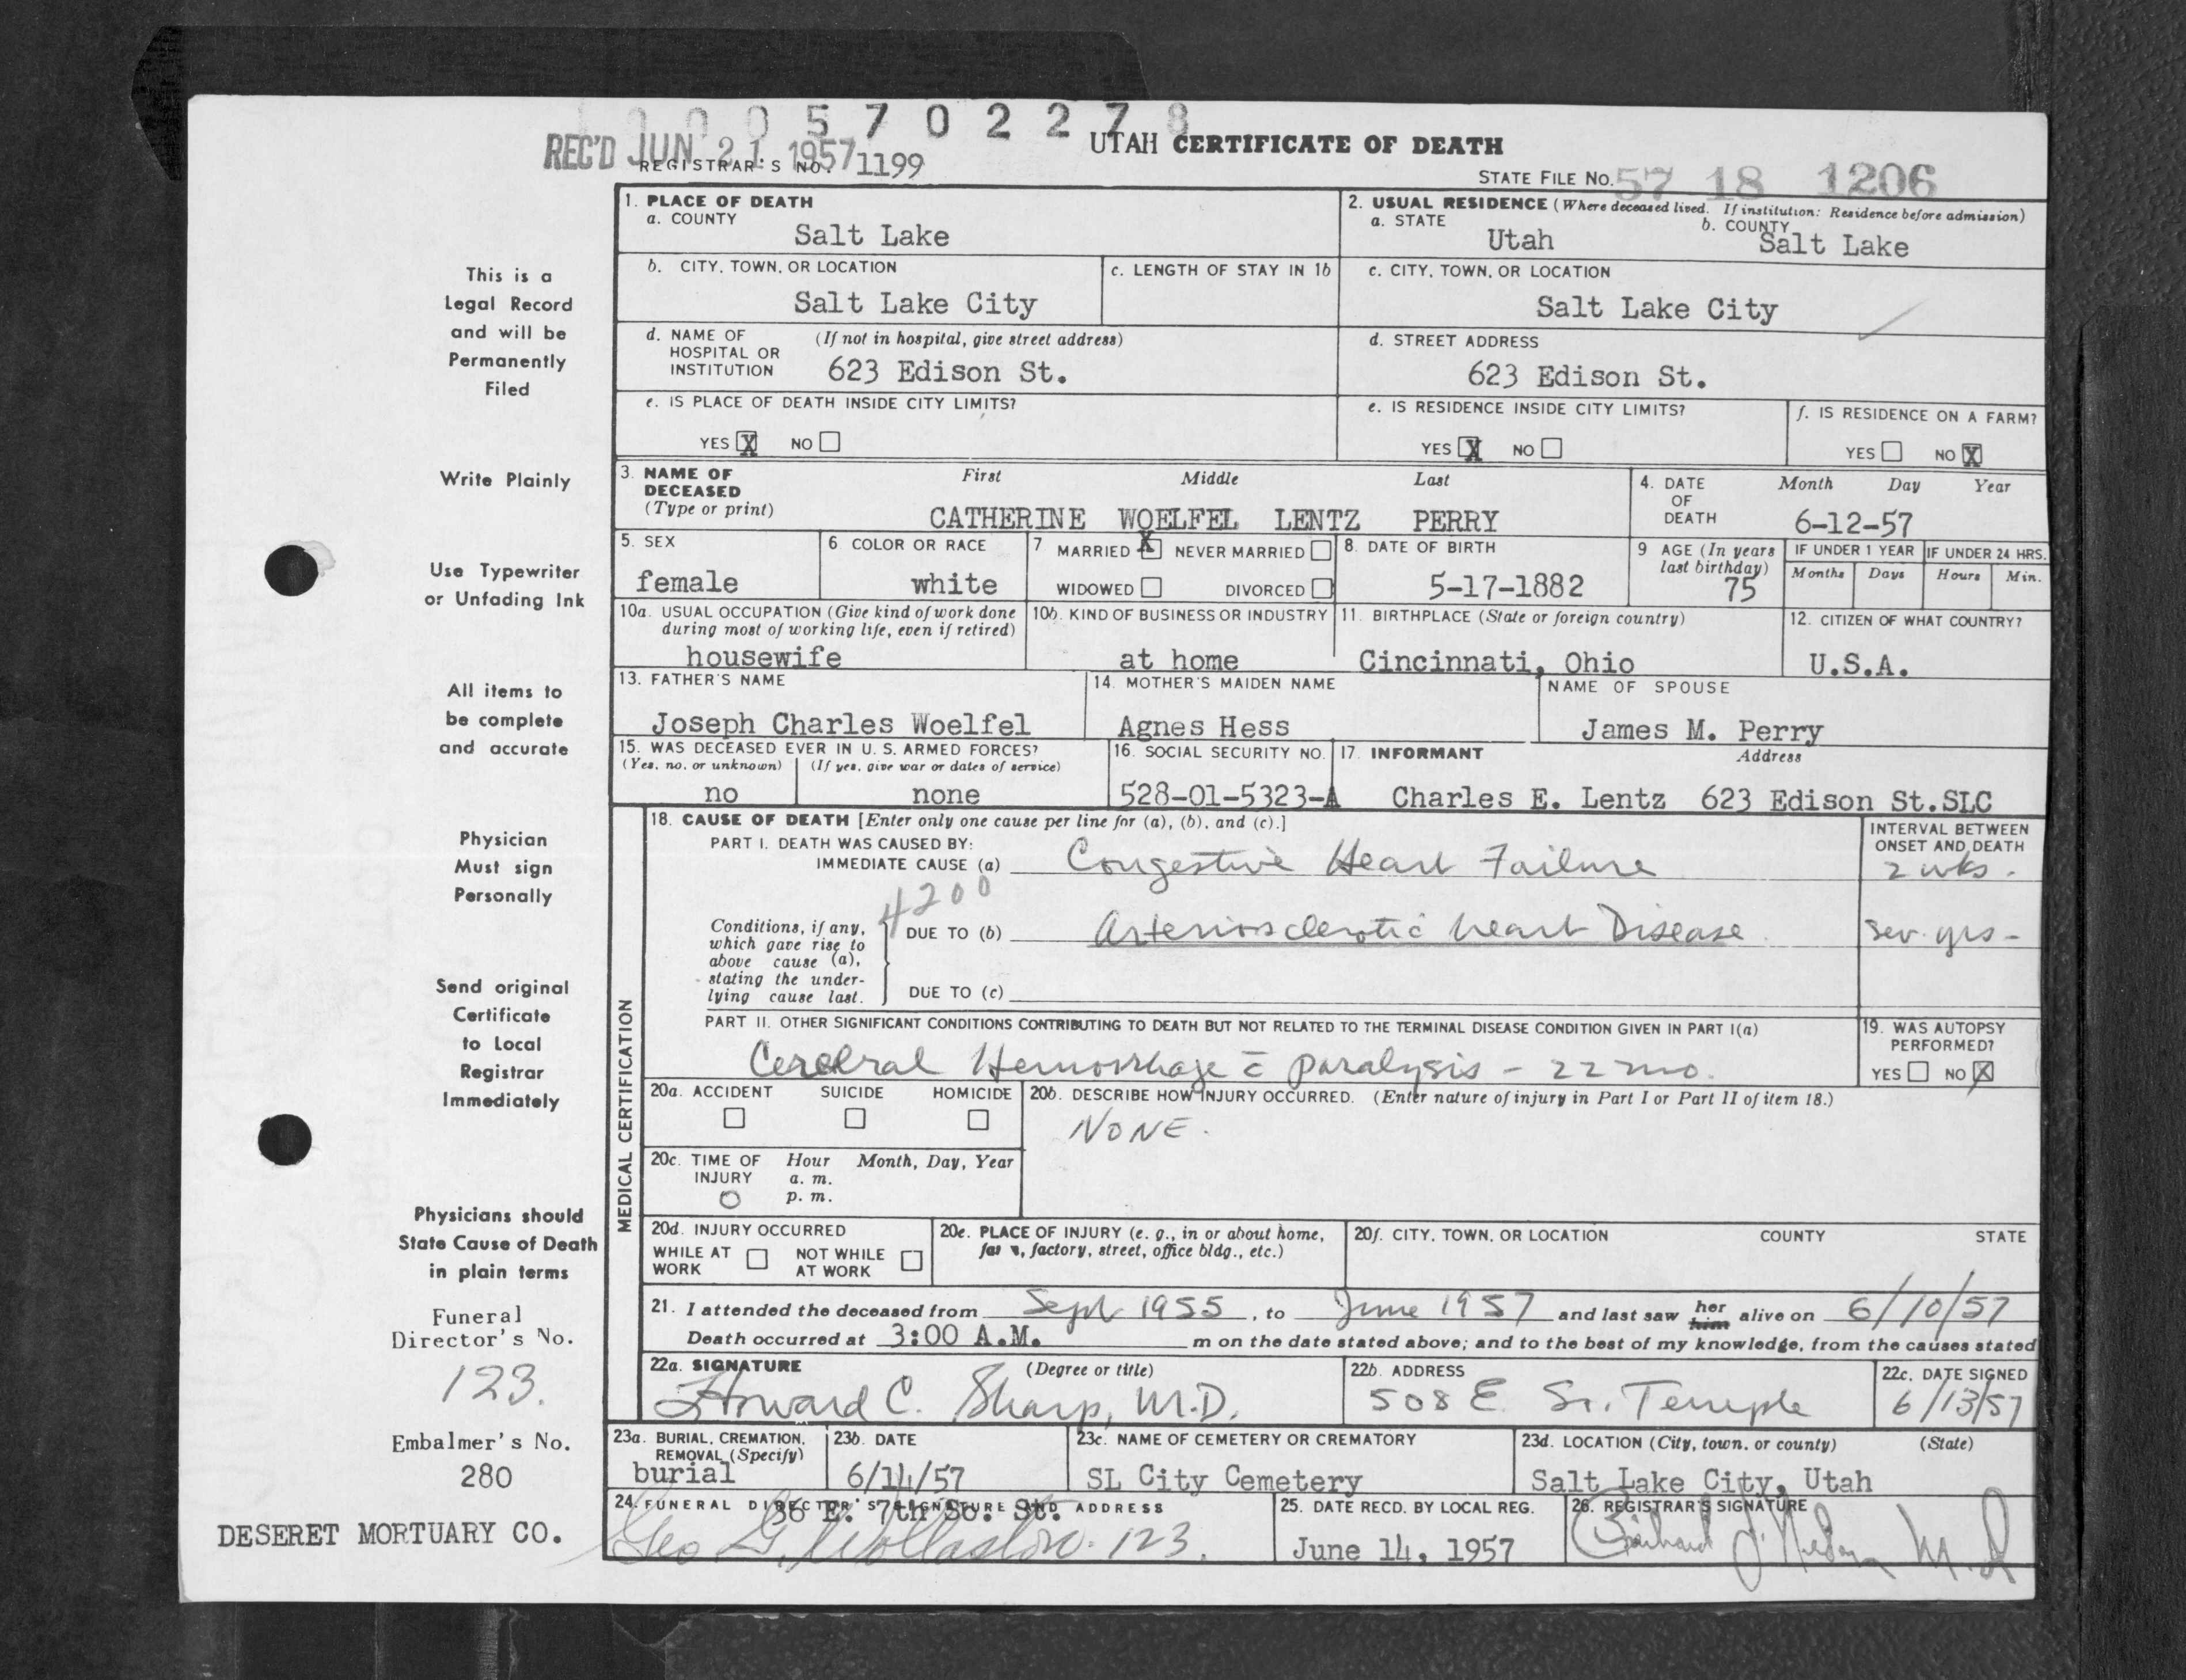 0 0 0 5 7 0 2 2 7 8
REC'D JUN 21 1957
REGISTRAR'S NO. 1199
UTAH CERTIFICATE OF DEATH
STATE FILE NO. 57 18 1206
1. PLACE OF DEATH
a. COUNTY
Salt Lake
2. USUAL RESIDENCE (Where deceased lived. If institution: Residence before admission)
a. STATE
Utah
b. COUNTY
Salt Lake
b. CITY, TOWN, OR LOCATION
Salt Lake City
c. LENGTH OF STAY IN 1b
c. CITY, TOWN, OR LOCATION
Salt Lake City
d. NAME OF HOSPITAL OR INSTITUTION
(If not in hospital, give street address)
623 Edison St.
d. STREET ADDRESS
623 Edison St.
e. IS PLACE OF DEATH INSIDE CITY LIMITS?
YES X NO
e. IS RESIDENCE INSIDE CITY LIMITS?
YES X NO
f. IS RESIDENCE ON A FARM?
YES NO X
3. NAME OF DECEASED
(Type or print)
First Middle Last
CATHERINE WOELFEL LENTZ PERRY
4. DATE OF DEATH
Month Day Year
6-12-57
5. SEX
female
6 COLOR OR RACE
white
7 MARRIED X NEVER MARRIED
WIDOWED DIVORCED
8. DATE OF BIRTH
5-17-1882
9 AGE (In years last birthday)
75
IF UNDER 1 YEAR
Months Days
IF UNDER 24 HRS.
Hours Min.
10a. USUAL OCCUPATION (Give kind of work done during most of working life, even if retired)
housewife
10b. KIND OF BUSINESS OR INDUSTRY
at home
11. BIRTHPLACE (State or foreign country)
Cincinnati, Ohio
12. CITIZEN OF WHAT COUNTRY?
U.S.A.
13. FATHER'S NAME
Joseph Charles Woelfel
14. MOTHER'S MAIDEN NAME
Agnes Hess
NAME OF SPOUSE
James M. Perry
15. WAS DECEASED EVER IN U. S. ARMED FORCES?
(Yes, no, or unknown) (If yes, give war or dates of service)
no none
16. SOCIAL SECURITY NO.
528-01-5323-A
17. INFORMANT Address
Charles E. Lentz 623 Edison St.SLC
MEDICAL CERTIFICATION
18. CAUSE OF DEATH [Enter only one cause per line for (a), (b), and (c).]
INTERVAL BETWEEN ONSET AND DEATH
PART I. DEATH WAS CAUSED BY:
IMMEDIATE CAUSE (a) Congestive Heart Failure 2 wks.
4200
Conditions, if any, which gave rise to above cause (a), stating the underlying cause last.
DUE TO (b) Arteriosclerotic heart Disease. Sev. yrs-
DUE TO (c)
PART II. OTHER SIGNIFICANT CONDITIONS CONTRIBUTING TO DEATH BUT NOT RELATED TO THE TERMINAL DISEASE CONDITION GIVEN IN PART I(a)
Cerebral Hemorrhage c̄ paralysis - 22 mo.
19. WAS AUTOPSY PERFORMED?
YES NO X
20a. ACCIDENT SUICIDE HOMICIDE
20b. DESCRIBE HOW INJURY OCCURRED. (Enter nature of injury in Part I or Part II of item 18.)
NONE.
20c. TIME OF INJURY
Hour Month, Day, Year
a. m.
p. m.
20d. INJURY OCCURRED
WHILE AT WORK NOT WHILE AT WORK
20e. PLACE OF INJURY (e. g., in or about home, farm, factory, street, office bldg., etc.)
20f. CITY, TOWN, OR LOCATION COUNTY STATE
21. I attended the deceased from Sept 1955, to June 1957 and last saw her him alive on 6/10/57
Death occurred at 3:00 A.M. m on the date stated above; and to the best of my knowledge, from the causes stated
22a. SIGNATURE (Degree or title)
Howard C. Sharp, M.D.
22b. ADDRESS
508 E. So. Temple
22c. DATE SIGNED
6/13/57
23a. BURIAL, CREMATION, REMOVAL (Specify)
burial
23b. DATE
6/14/57
23c. NAME OF CEMETERY OR CREMATORY
SL City Cemetery
23d. LOCATION (City, town, or county) (State)
Salt Lake City, Utah
24. FUNERAL DIRECTOR'S SIGNATURE AND ADDRESS
36 E. 7th So. St.
Geo G. Wollaston. 123.
25. DATE RECD. BY LOCAL REG.
June 14, 1957
26. REGISTRAR'S SIGNATURE
M.D
This is a
Legal Record
and will be
Permanently
Filed
Write Plainly
Use Typewriter
or Unfading Ink
All items to
be complete
and accurate
Physician
Must sign
Personally
Send original
Certificate
to Local
Registrar
Immediately
Physicians should
State Cause of Death
in plain terms
Funeral
Director's No.
123.
Embalmer's No.
280
DESERET MORTUARY CO.